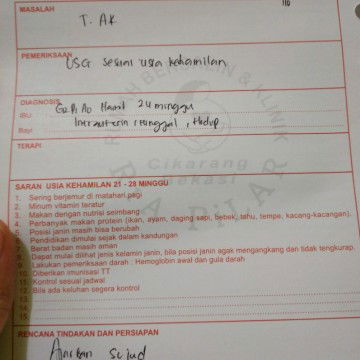 MASALAH
T. AK
PEMERIKSAAN
USG sesuai usia kehamilan
DIAGNOSIS
IBU : G2 P1 A0 Hamil 24 minggu
Bayi : Intrauterin, tunggal, Hidup
TERAPI
RUMAH BERSALIN & KLINIK
Cikarang
Bekasi
SARAN USIA KEHAMILAN 21 - 28 MINGGU
1. Sering berjemur di matahari pagi
2. Minum vitamin teratur
3. Makan dengan nutrisi seimbang
4. Perbanyak makan protein (ikan, ayam, daging sapi, bebek, tahu, tempe, kacang-kacangan).
5. Posisi janin masih bisa berubah
6. Pendidikan dimulai sejak dalam kandungan
7. Berat badan masih aman
8. Dapat mulai dilihat jenis kelamin janin, bila posisi janin agak mengangkang dan tidak tengkurap.
9. Lakukan pemeriksaan darah : Hemoglobin awal dan gula darah
10. Diberikan imunisasi TT
11. Kontrol sesuai jadwal
12. Bila ada keluhan segera kontrol
13.
14.
15.
RENCANA TINDAKAN DAN PERSIAPAN